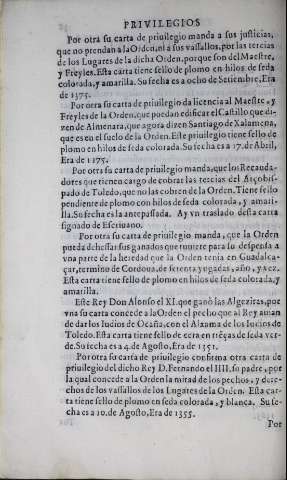 PRIVILEGIOS
Por otra su carta de priuilegio manda a sus justicias,
que no prendan a la Orden, ni a sus vassallos, por las tercias
de los Lugares de la dicha Orden, porque son del Maestre,
y Freyles. Esta carta tiene sello de plomo en hilos de seda
colorada, y amarilla. Su fecha es a ocho de Setiembre, Era
de 1375.
Por otra su carta de priuilegio da licencia al Maestre, y
Freyles de la Orden, que puedan edificar el Castillo que di-
zen de Almenara, que agora dizen Santiago de Xalamena,
que es en el suelo de la Orden. Este priuilegio tiene sello de
plomo en hilos de seda colorada. Su fecha es a 17. de Abril,
Era de 1375.
Por otra su carta de priuilegio manda, que los Recauda-
dores que tienen cargo de cobrar las tercias del Arçobis-
pado de Toledo, que no las cobren de la Orden. Tiene sello
pendiente de plomo con hilos de seda colorada, y amari-
lla. Su fecha es la antepassada. Ay vn traslado desta carta
signado de Escriuano.
Por otra su carta de priuilegio manda, que la Orden
pueda dehessar sus ganados que tuuiere para su despensa a
vna parte de la heredad que la Orden tenia en Guadalca-
çar, termino de Cordoua, de setenta yugadas, año, y vez.
Esta carta tiene sello de plomo en hilos de seda colorada, y
amarilla.
Este Rey Don Alonso el XI. que ganò las Algeziras, por
vna su carta concede a la Orden el pecho que al Rey auian
de dar los Iudios de Ocaña, con el Alxama de los Iudios de
Toledo. Esta carta tiene sello de cera en trẽças de seda ver-
de. Su fecha es a 4. de Agosto, Era de 1351.
Por otra su carta de priuilegio confirma otra carta de
priuilegio del dicho Rey D. Fernando el IIII. su padre, por
la qual concede a la Orden la mitad de los pechos, y dere-
chos de los vassallos de los Lugares de la Orden. Esta car-
ta tiene sello de plomo en seda colorada, y blanca. Su fe-
cha es a 20. de Agosto, Era de 1355.
Por